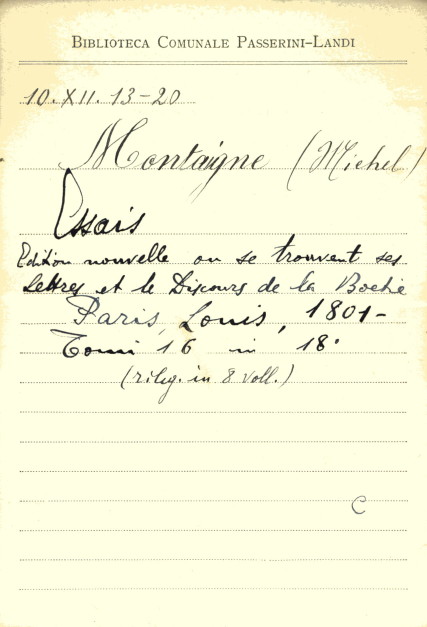 BIBLIOTECA COMUNALE PASSERINI-LANDI
10. XII. 13-20
Montaigne (Michel)
Essais
Edition nouvelle ou se trouvent ses
Lettres et le Discours de la Boetie
Paris, Louis, 1801-
Tomi 16 in 18°
(rileg. in 8 voll.)
C